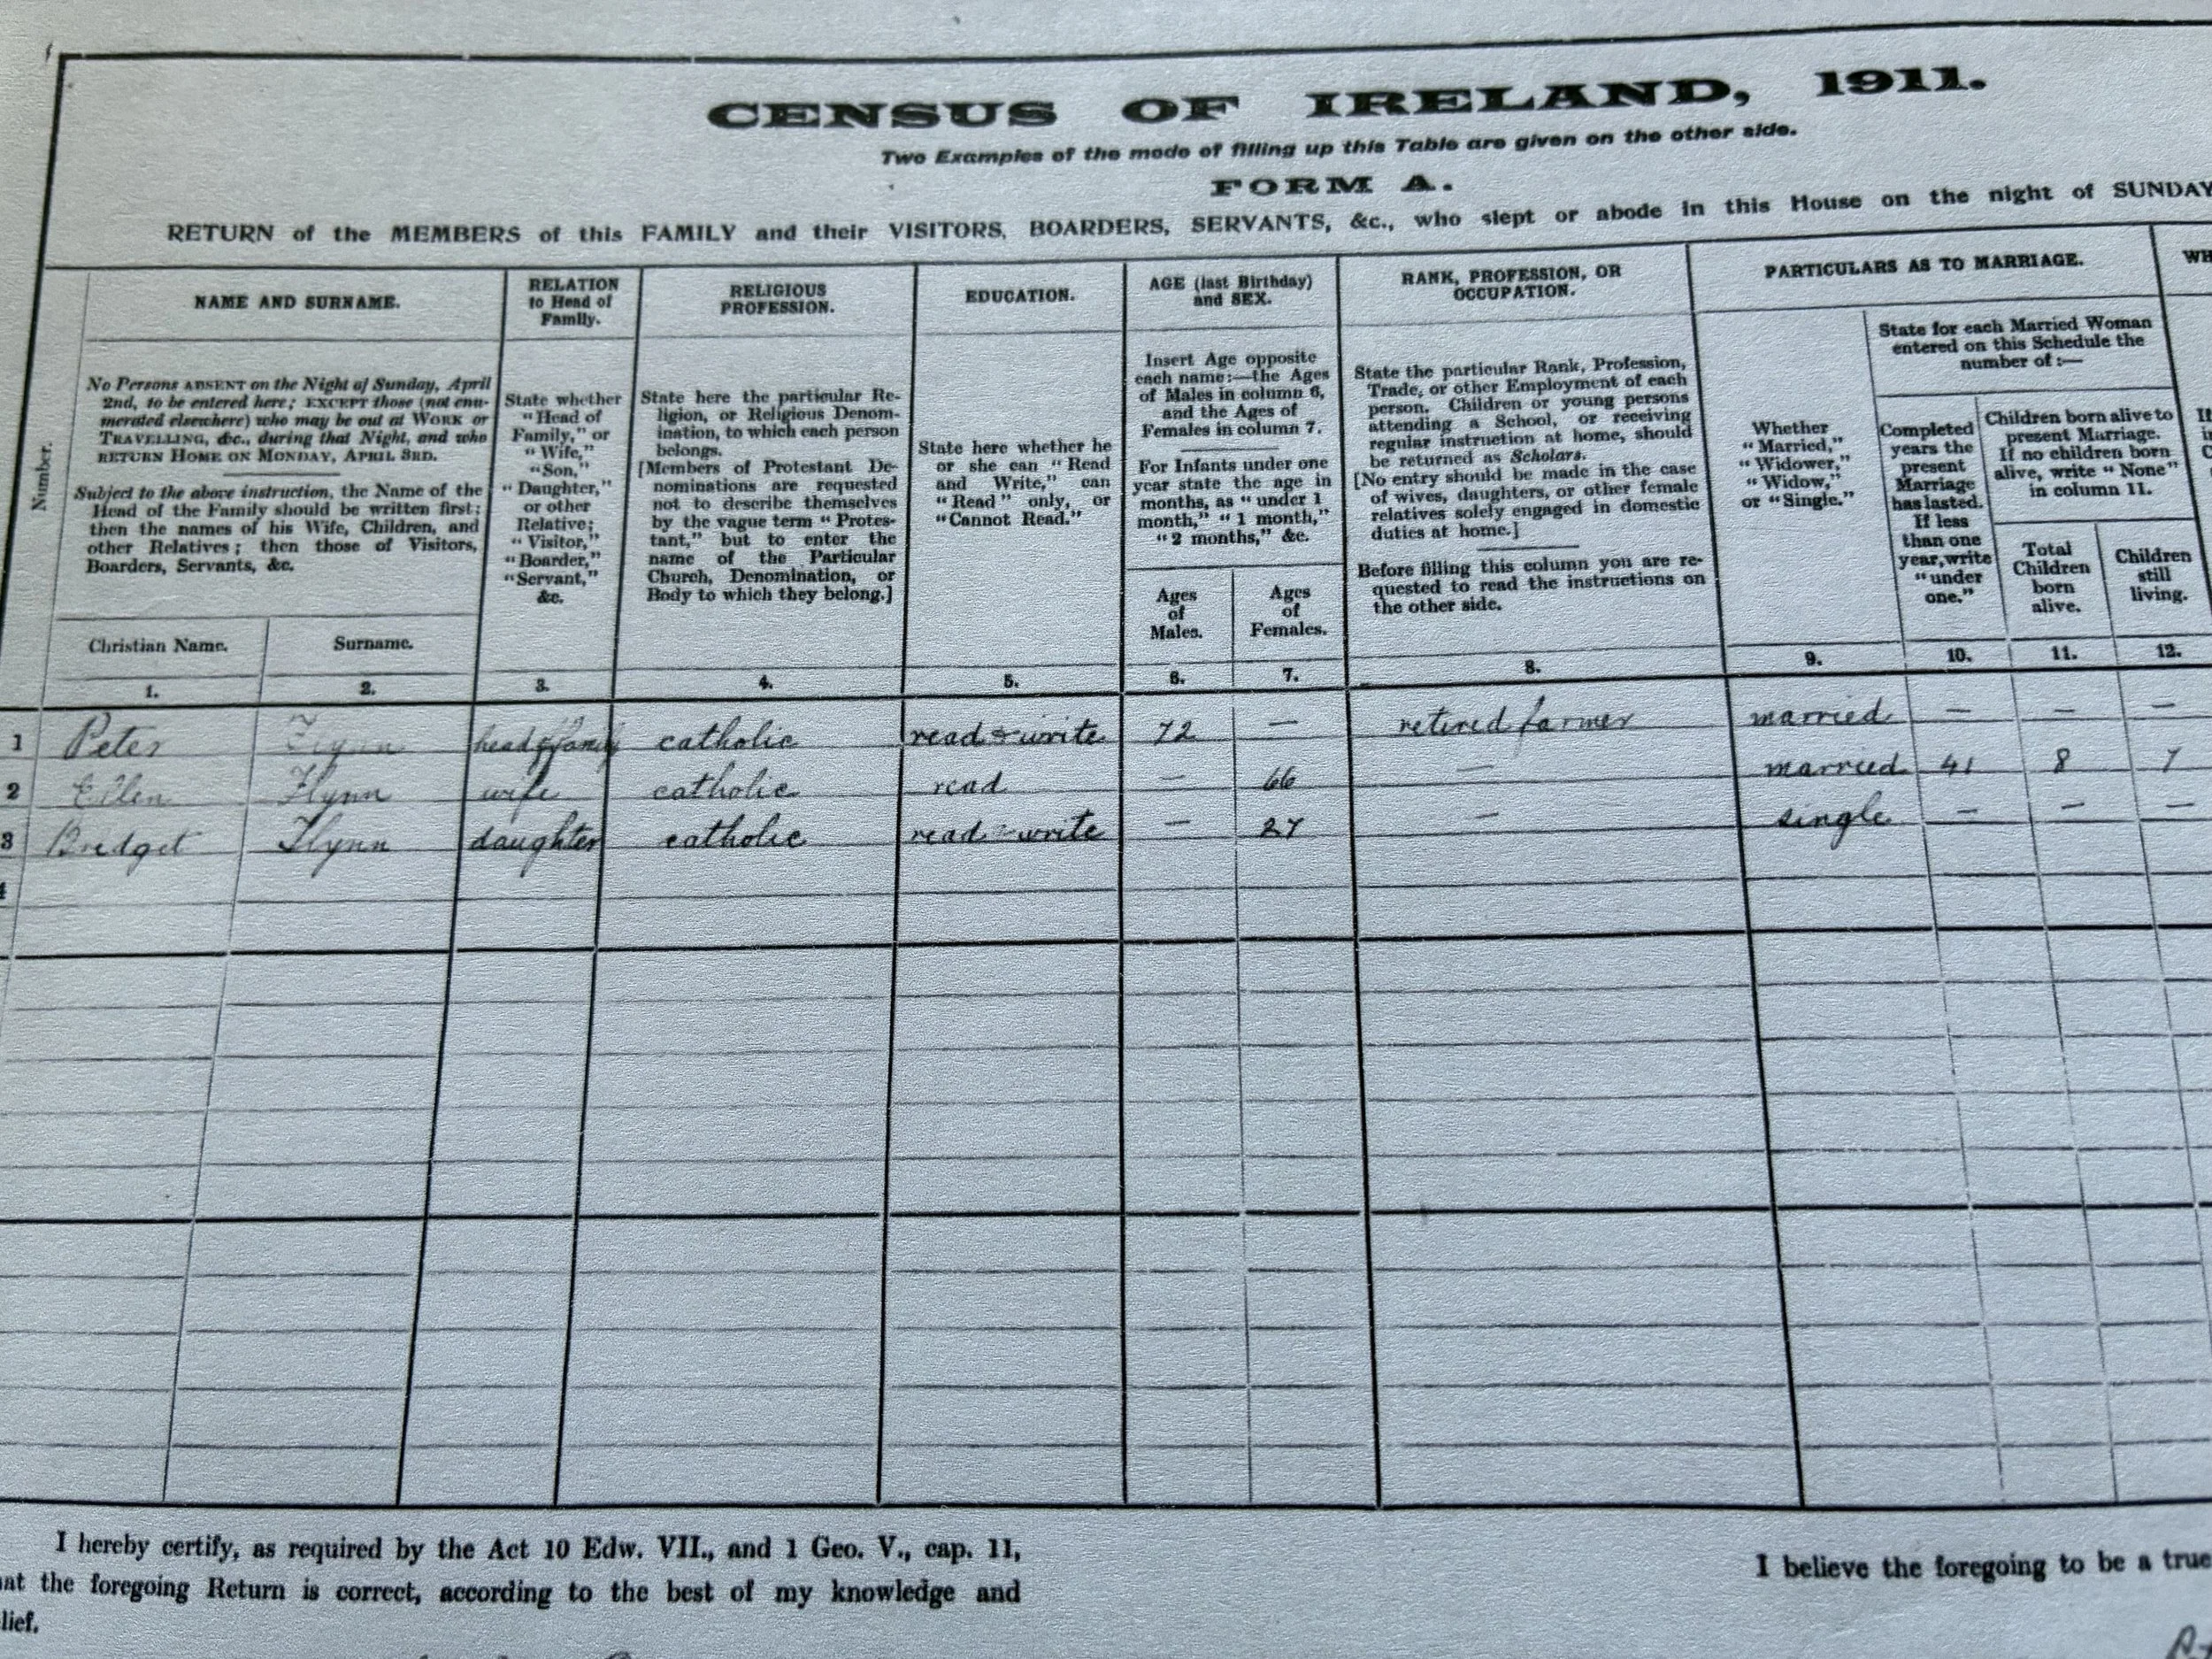 CENSUS OF IRELAND, 1911.
Two Examples of the mode of filling up this Table are given on the other side.
FORM A.
RETURN of the MEMBERS of this FAMILY and their VISITORS, BOARDERS, SERVANTS, &c., who slept or abode in this House on the night of SUNDAY
Number.
NAME AND SURNAME.
No Persons ABSENT on the Night of Sunday, April
2nd, to be entered here; EXCEPT those (not enu-
merated elsewhere) who may be out at WORK or
TRAVELLING, &c., during that Night, and who
RETURN HOME ON MONDAY, APRIL 3RD.
Subject to the above instruction, the Name of the
Head of the Family should be written first;
then the names of his Wife, Children, and
other Relatives; then those of Visitors,
Boarders, Servants, &c.
Christian Name.
Surname.
1.
2.
RELATION
to Head of
Family.
State whether
"Head of
Family," or
"Wife,"
"Son,"
"Daughter,"
or other
Relative;
"Visitor,"
"Boarder,"
"Servant,"
&c.
3.
RELIGIOUS
PROFESSION.
State here the particular Re-
ligion, or Religious Denom-
ination, to which each person
belongs.
[Members of Protestant De-
nominations are requested
not to describe themselves
by the vague term "Protes-
tant," but to enter the
name of the Particular
Church, Denomination, or
Body to which they belong.]
4.
EDUCATION.
State here whether he
or she can "Read
and Write," can
"Read" only, or
"Cannot Read."
5.
AGE (last Birthday)
and SEX.
Insert Age opposite
each name:—the Ages
of Males in column 6,
and the Ages of
Females in column 7.
For Infants under one
year state the age in
months, as "under 1
month," "1 month,"
"2 months," &c.
Ages
of
Males.
Ages
of
Females.
6.
7.
RANK, PROFESSION, OR
OCCUPATION.
State the particular Rank, Profession,
Trade, or other Employment of each
person. Children or young persons
attending a School, or receiving
regular instruction at home, should
be returned as Scholars.
[No entry should be made in the case
of wives, daughters, or other female
relatives solely engaged in domestic
duties at home.]
Before filling this column you are re-
quested to read the instructions on
the other side.
8.
PARTICULARS AS TO MARRIAGE.
Whether
"Married,"
"Widower,"
"Widow,"
or "Single."
9.
State for each Married Woman
entered on this Schedule the
number of:—
Completed
years the
present
Marriage
has lasted.
If less
than one
year, write
"under
one."
10.
Children born alive to
present Marriage.
If no children born
alive, write "None"
in column 11.
Total
Children
born
alive.
11.
Children
still
living.
12.
WH
1 Peter Flynn head of family catholic read & write 72 — retired farmer married — — —
2 Ellen Flynn wife catholic read — 66 — married 41 8 7
3 Bridget Flynn daughter catholic read & write — 27 — single — — —
4
I hereby certify, as required by the Act 10 Edw. VII., and 1 Geo. V., cap. 11,
at the foregoing Return is correct, according to the best of my knowledge and
lief.
I believe the foregoing to be a true